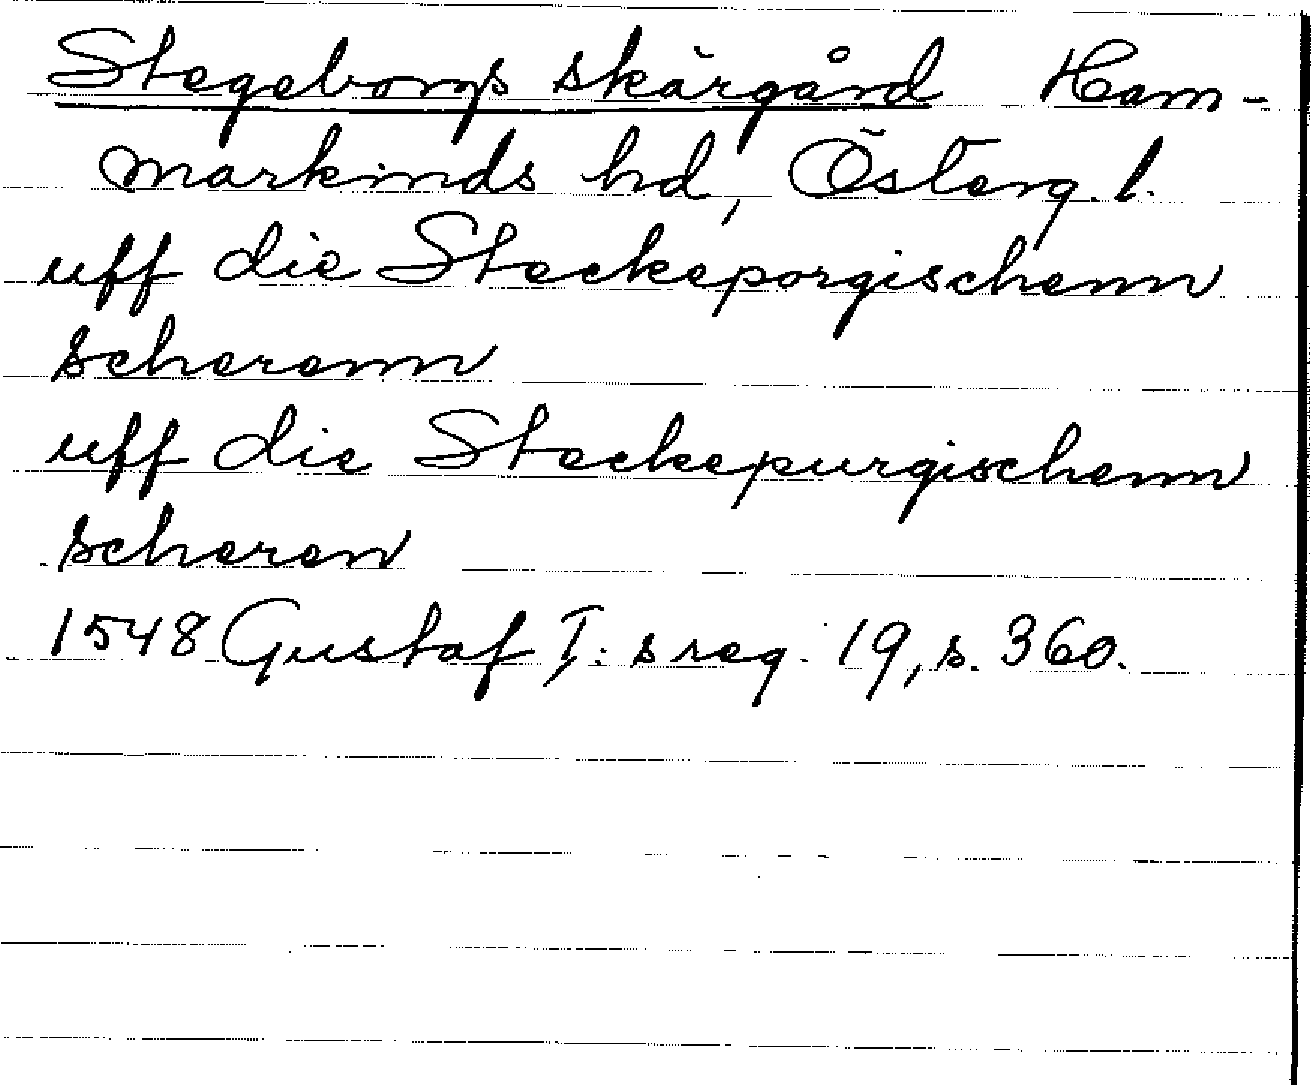 Stegeborgs skärgård Ham-
markinds hd, Österg. l.
uff die Steckeporgischenn
scherenn
uff die Steckepurgischenn
scheren
1548 Gustaf I:s reg. 19, s. 360.